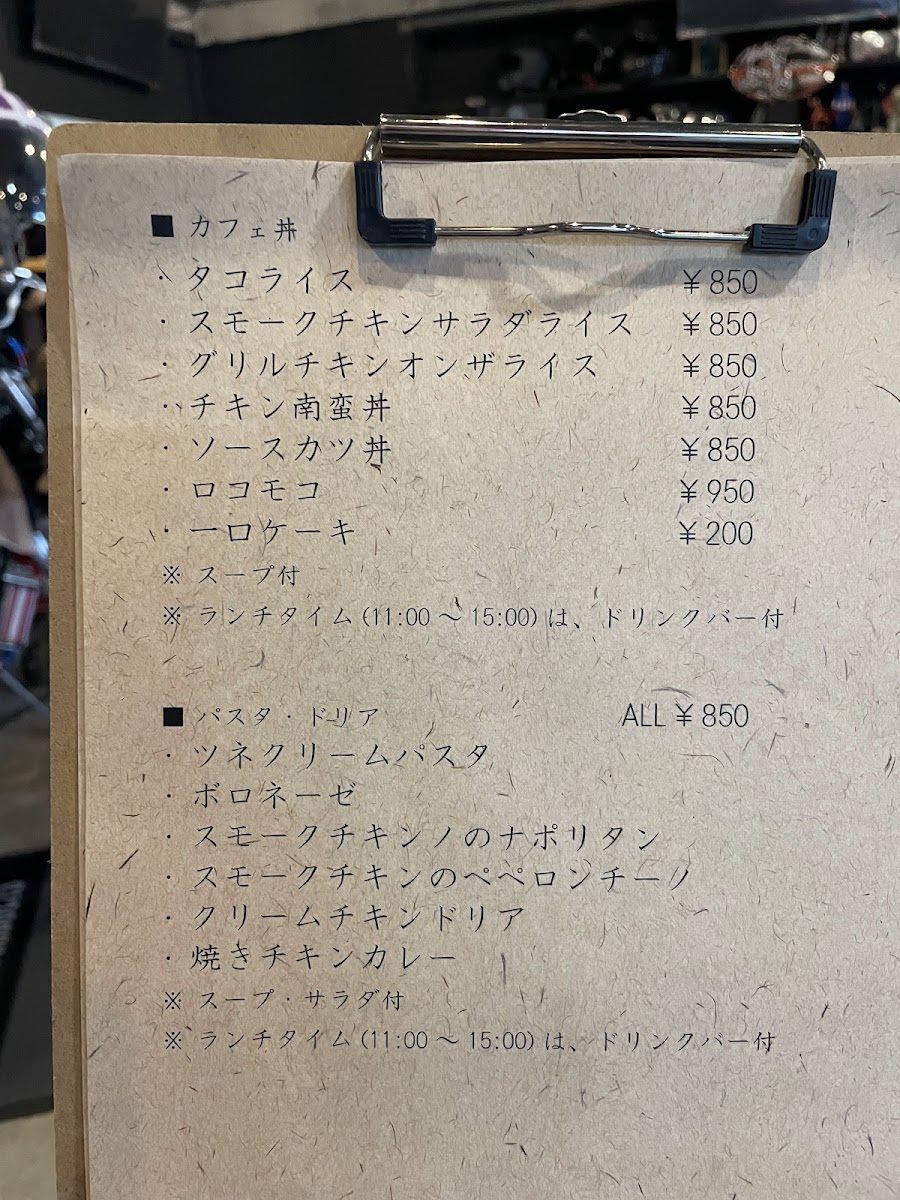 ■ カフェ丼
・タコライス ¥850
・スモークチキンサラダライス ¥850
・グリルチキンオンザライス ¥850
・チキン南蛮丼 ¥850
・ソースカツ丼 ¥850
・ロコモコ ¥950
・一口ケーキ ¥200
※ スープ付
※ ランチタイム(11:00～15:00)は、ドリンクバー付
■ パスタ・ドリア ALL ¥850
・ツネクリームパスタ
・ボロネーゼ
・スモークチキンノのナポリタン
・スモークチキンのペペロンチーノ
・クリームチキンドリア
・焼きチキンカレー
※ スープ・サラダ付
※ ランチタイム(11:00～15:00)は、ドリンクバー付